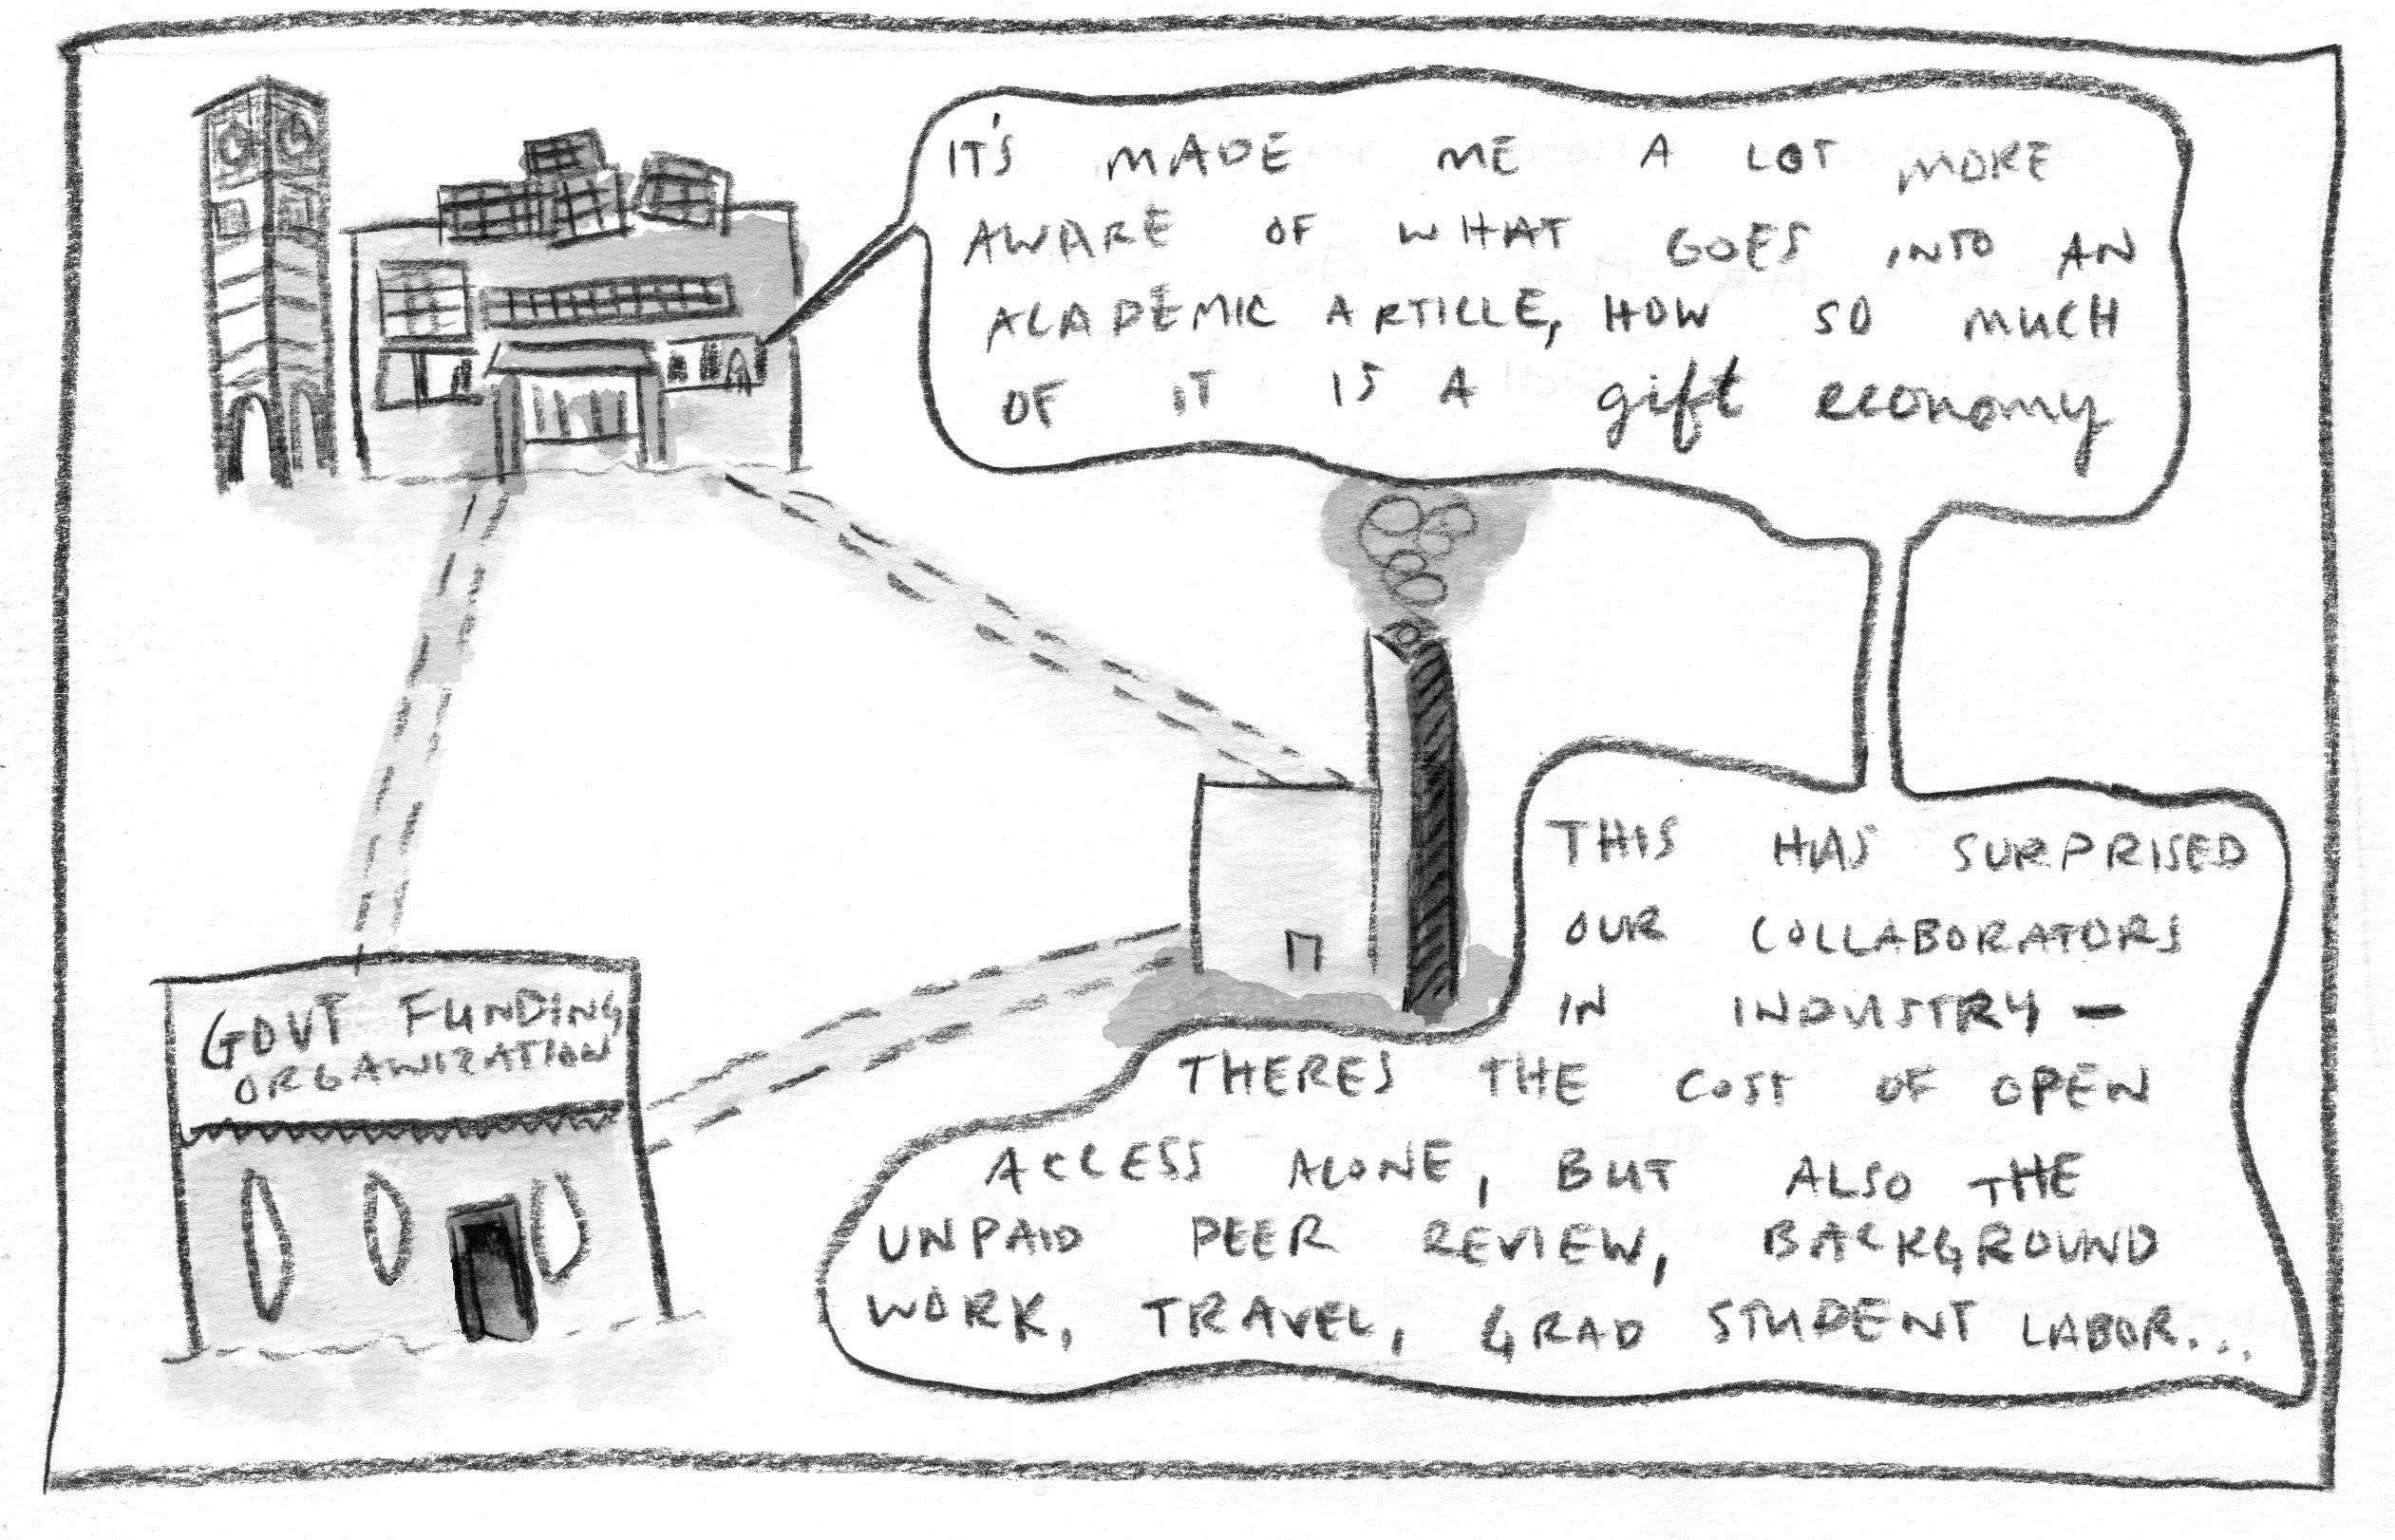 IT'S MADE ME A LOT MORE
AWARE OF WHAT GOES INTO AN
ACADEMIC ARTICLE, HOW SO MUCH
OF IT IS A gift economy
THIS HAS SURPRISED
OUR COLLABORATORS
IN INDUSTRY —
THERES THE COST OF OPEN
ACCESS ALONE, BUT ALSO THE
UNPAID PEER REVIEW, BACKGROUND
WORK, TRAVEL, GRAD STUDENT LABOR...
GOVT FUNDING
ORGANIZATION